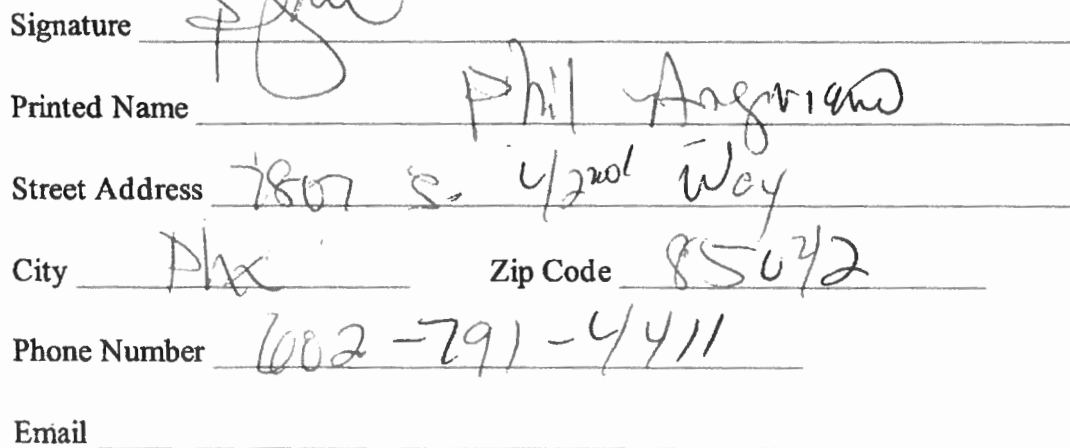 Signature
Printed Name Phil Angiriano
Street Address 7807 S. 42nd Way
City Phx Zip Code 85042
Phone Number 602-791-4411
Email